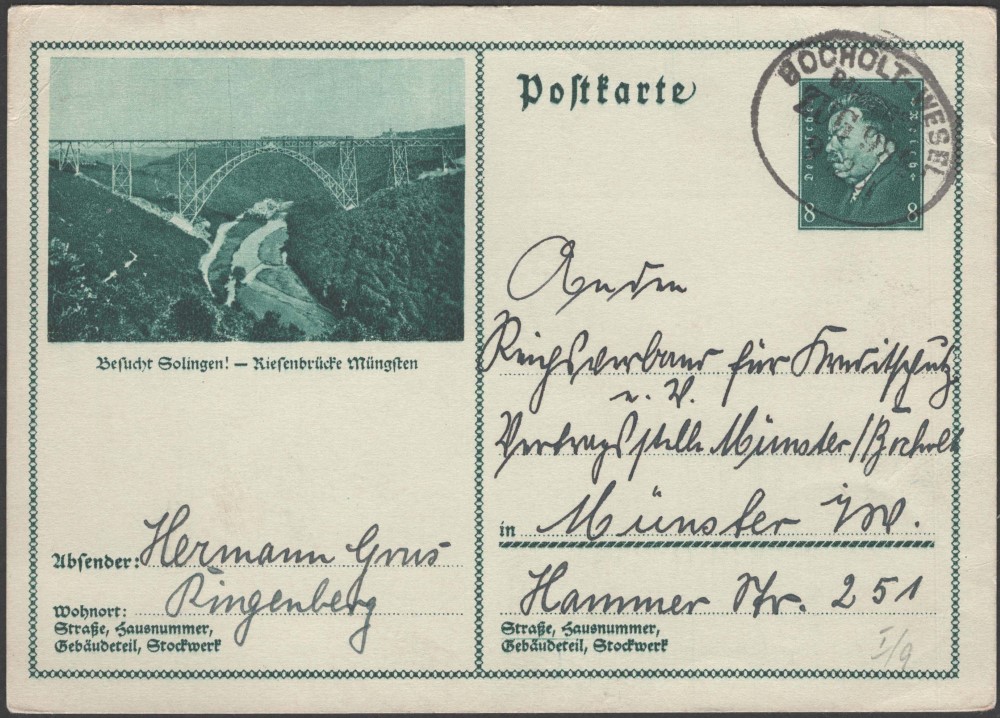 Besucht Solingen! — Riesenbrücke Müngsten
Absender: Hermann Grus
Wohnort: Ringenberg
Straße, Hausnummer,
Gebäudeteil, Stockwerk
Postkarte
BOCHOLT-WESEL
ZUG
Deutsches Reich
8 8
An den
Reichsverband für Kreditschutz
e. V.
Vertragsstelle Münster/Bocholt
in Münster i/W.
Hammer Str. 251
Straße, Hausnummer,
Gebäudeteil, Stockwerk
I/9